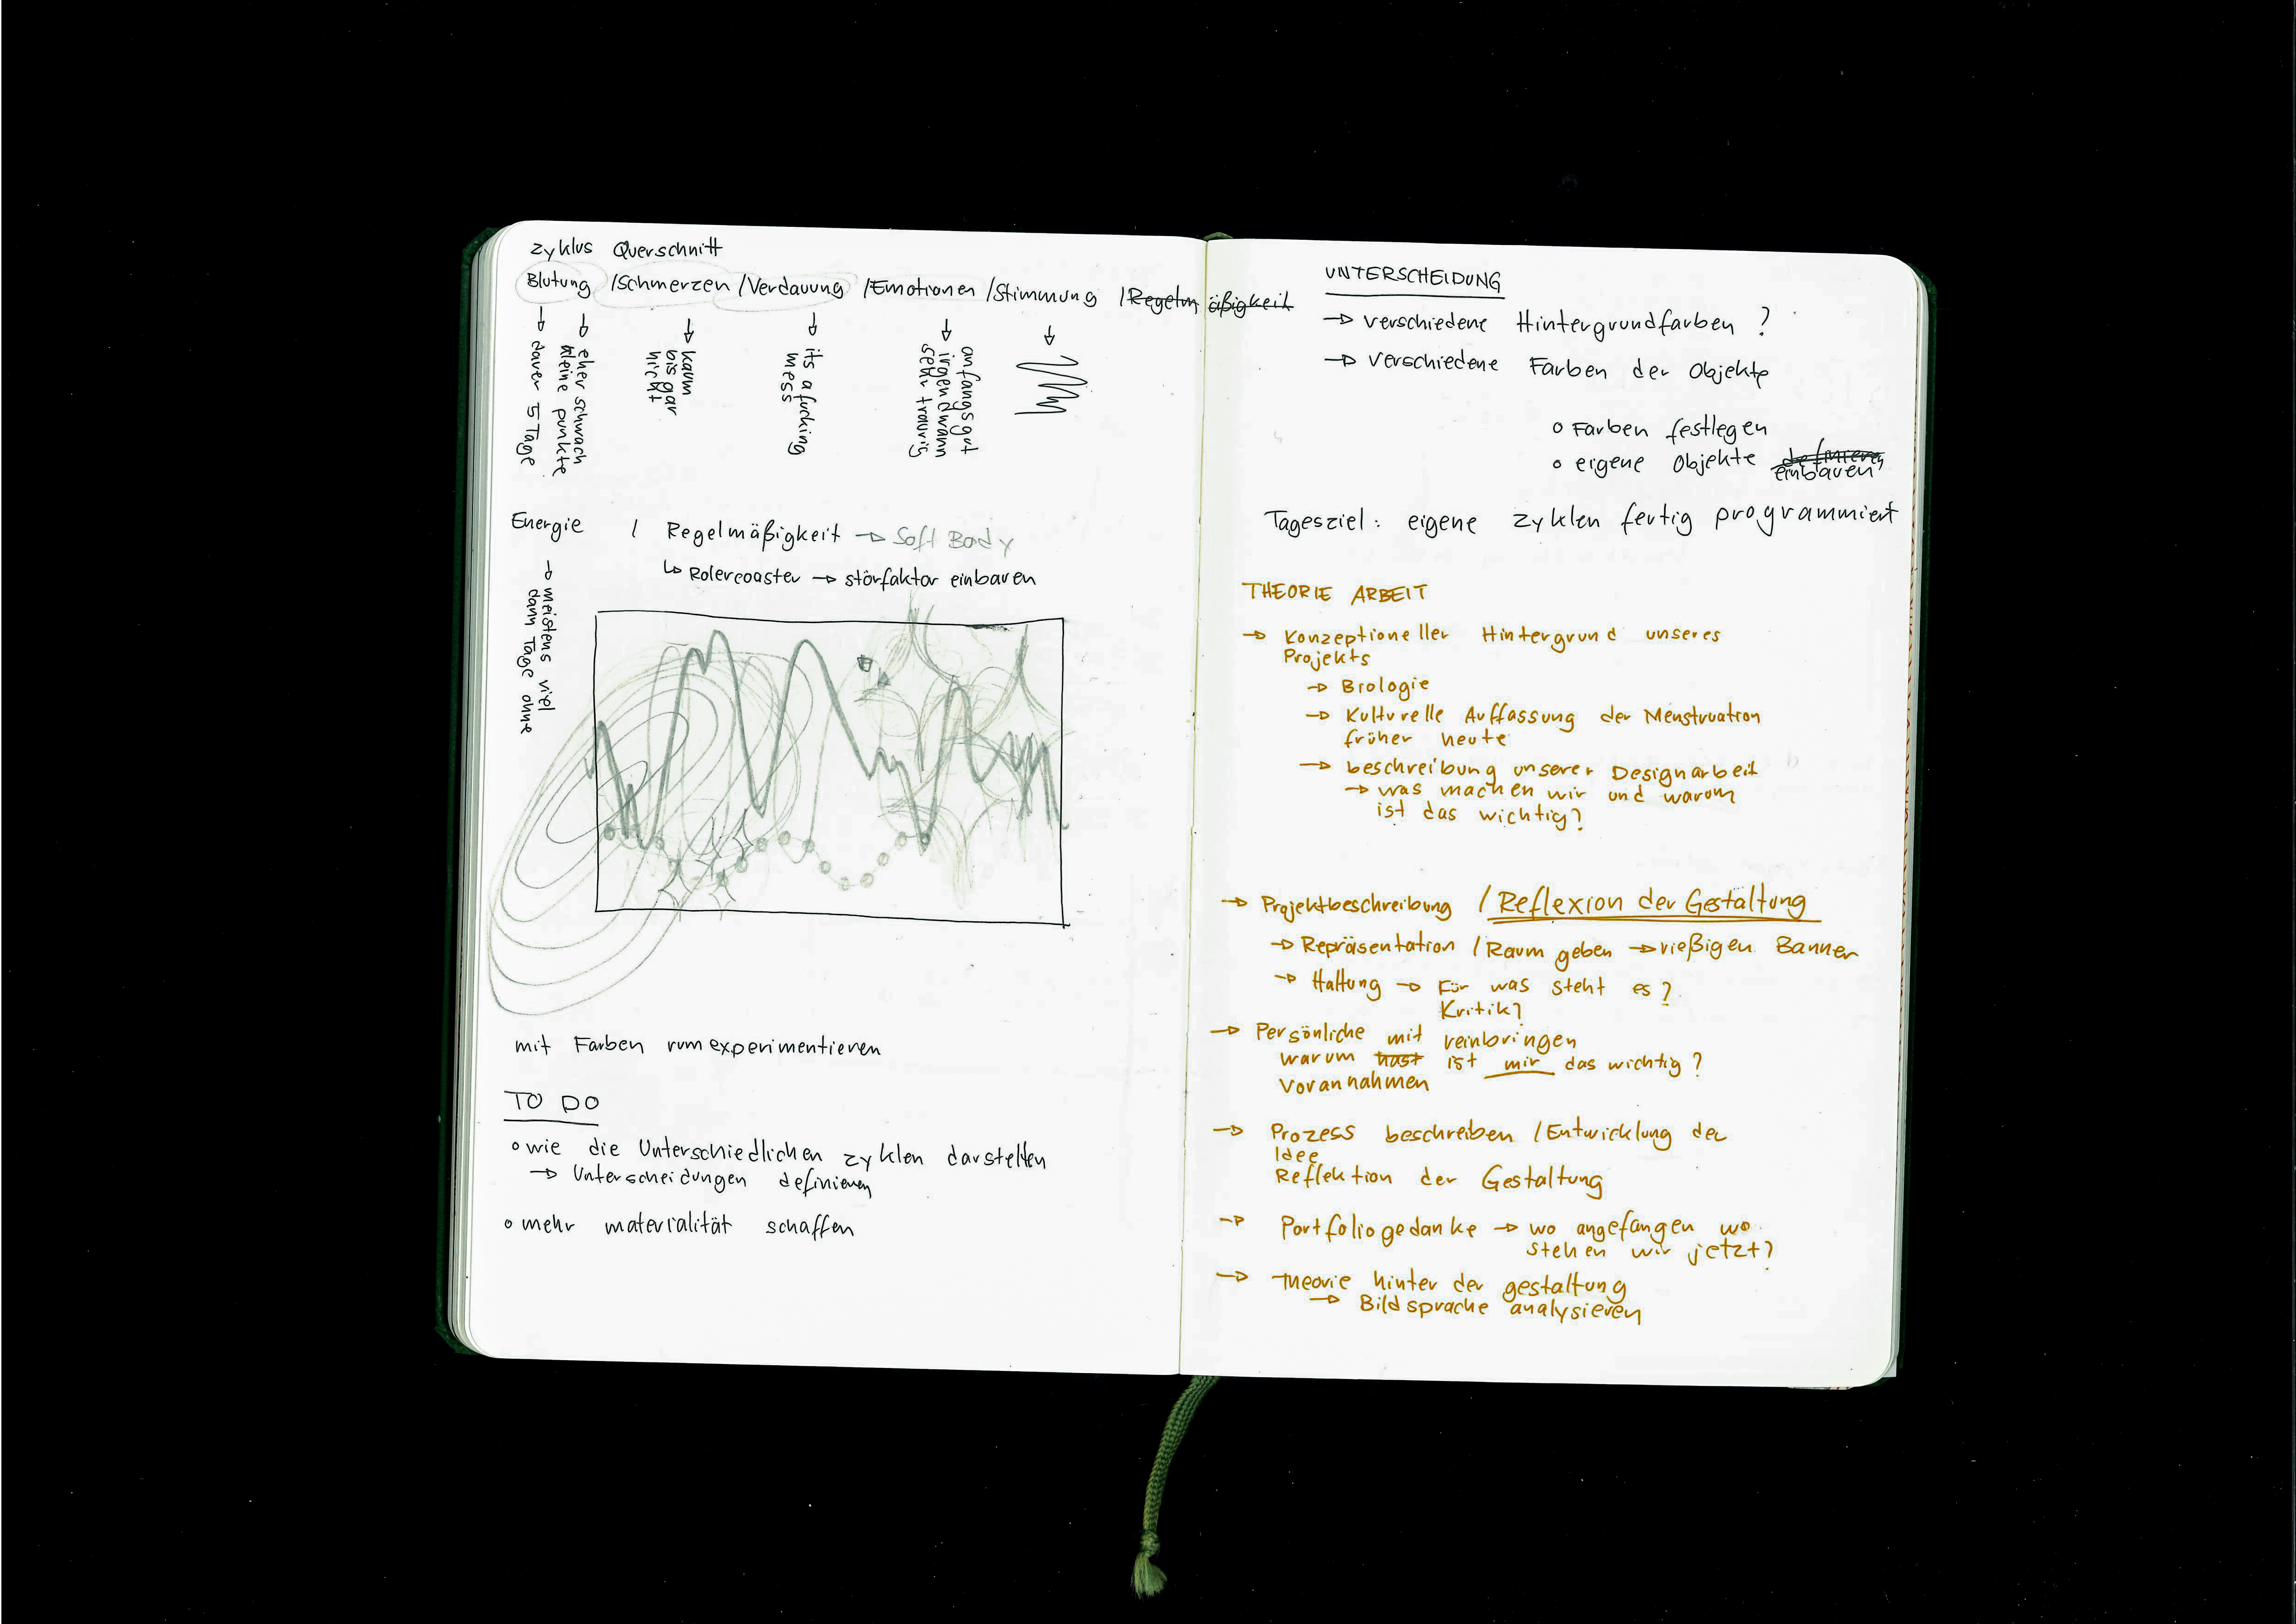 zyklus Querschnitt
Blutung /Schmerzen /Verdauung /Emotionen /Stimmung /Regelmäßigkeit
eher schwach
kleine punkte
dauer 5 Tage
kaum
bis gar
nicht
its a fucking
mess
anfangs gut
irgendwann
sehr traurig
Energie / Regelmäßigkeit → Soft Body
↳ Rolercoaster → störfaktor einbauen
→ meistens viel
dann Tage ohne
mit Farben rumexperimentieren
TO DO
o wie die Unterschiedlichen zyklen darstellen
→ Unterscheidungen definieren
o mehr materialität schaffen
UNTERSCHEIDUNG
→ verschiedene Hintergrundfarben ?
→ verschiedene Farben der Objekte
o Farben festlegen
o eigene Objekte definieren
einbauen
Tagesziel: eigene zyklen fertig programmiert
THEORIE ARBEIT
→ Konzeptioneller Hintergrund unseres
Projekts
→ Biologie
→ Kulturelle Auffassung der Menstruation
früher heute
→ beschreibung unserer Designarbeit
→ was machen wir und warum
ist das wichtig?
→ Projektbeschreibung / Reflexion der Gestaltung
→ Repräsentation / Raum geben → rießigen Banner
→ Haltung → Für was steht es?
Kritik?
→ Persönliche mit reinbringen
warum hast ist mir das wichtig?
Vorannahmen
→ Prozess beschreiben / Entwicklung der
Idee
Reflektion der Gestaltung
→ Portfoliogedanke → wo angefangen wo
stehen wir jetzt?
→ Theorie hinter der gestaltung
→ Bildsprache analysieren